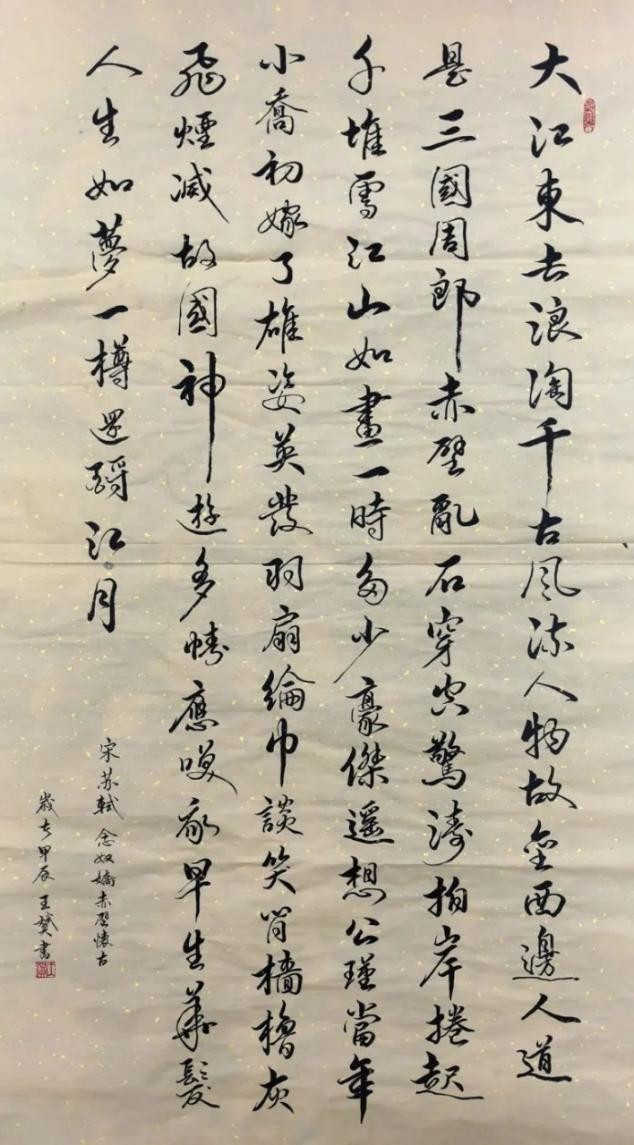 大江東去浪淘千古風流人物故壘西邊人道
是三國周郎赤壁亂石穿空驚濤拍岸捲起
千堆雪江山如畫一時多少豪傑遙想公瑾當年
小喬初嫁了雄姿英發羽扇綸巾談笑間檣櫓灰
飛煙滅故國神遊多情應笑我早生華髮
人生如夢一樽還酹江月
宋苏軾念奴嬌赤壁懷古
歲在甲辰王書